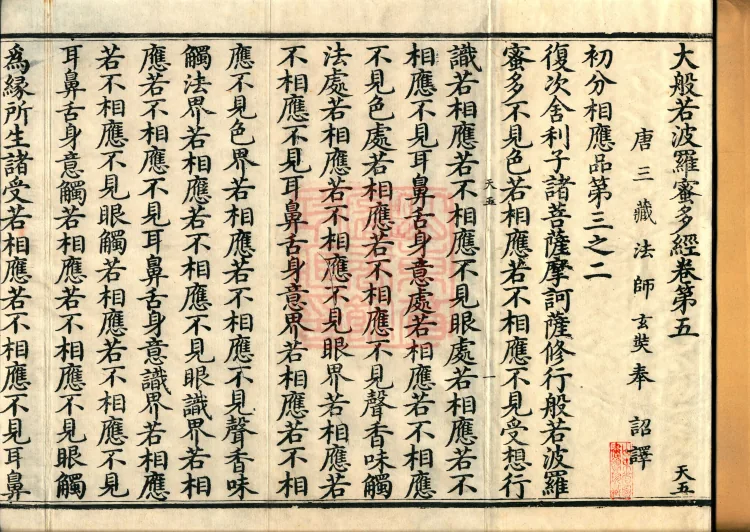 大般若波羅蜜多經卷第五
天五
唐三藏法師玄奘奉 詔譯
初分相應品第三之二
復次舍利子諸菩薩摩訶薩修行般若波羅
蜜多不見色若相應若不相應不見受想行
天五 一
識若相應若不相應不見眼處若相應若不
相應不見耳鼻舌身意處若相應若不相應
不見色處若相應若不相應不見聲香味觸
法處若相應若不相應不見眼界若相應若
不相應不見耳鼻舌身意界若相應若不相
應不見色界若相應若不相應不見聲香味
觸法界若相應若不相應不見眼識界若相
應若不相應不見耳鼻舌身意識界若相應
若不相應不見眼觸若相應若不相應不見
耳鼻舌身意觸若相應若不相應不見眼觸
為緣所生諸受若相應若不相應不見耳鼻